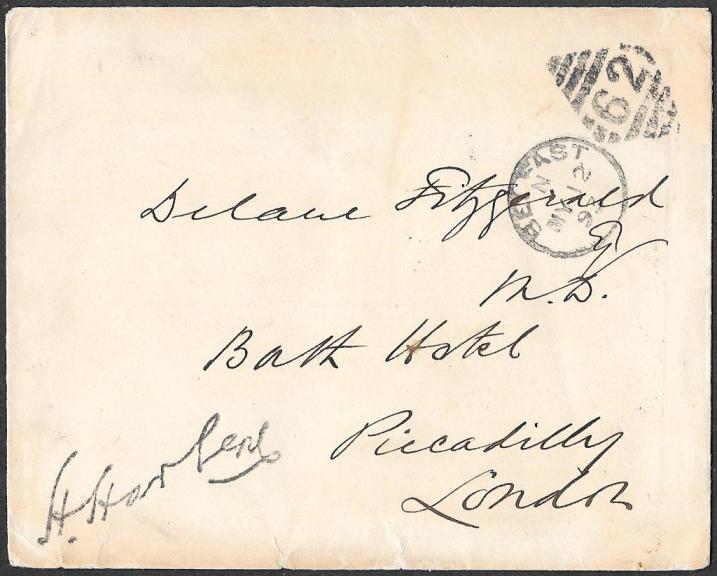 62
BELFAST
N
MY 2
96
Delane Fitzgerald
Esq
M.D.
Bath Hotel
Piccadilly
London
H.